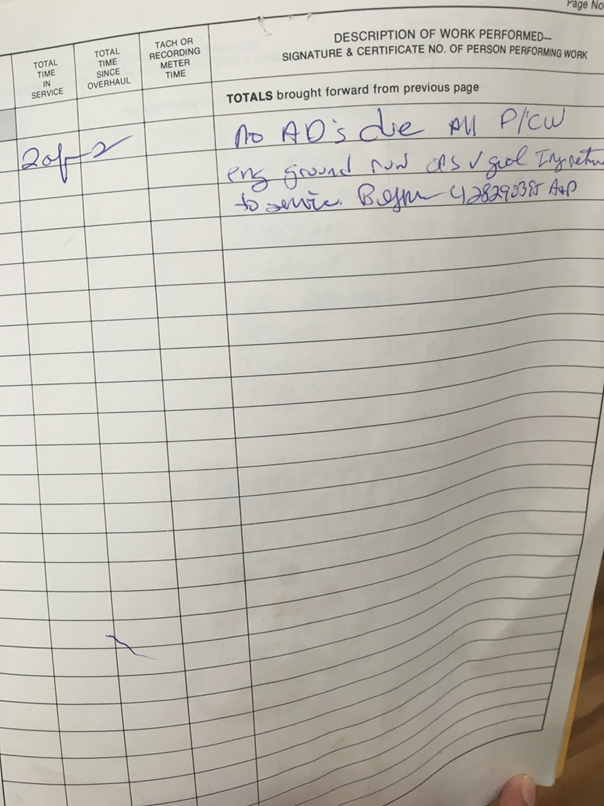 Page No
TOTAL TIME IN SERVICE
TOTAL TIME SINCE OVERHAUL
TACH OR RECORDING METER TIME
DESCRIPTION OF WORK PERFORMED—
SIGNATURE & CERTIFICATE NO. OF PERSON PERFORMING WORK
TOTALS brought forward from previous page
2 of 2
No AD's due All P/CW
eng ground run ops √ good return
to service. 428290385 A&P